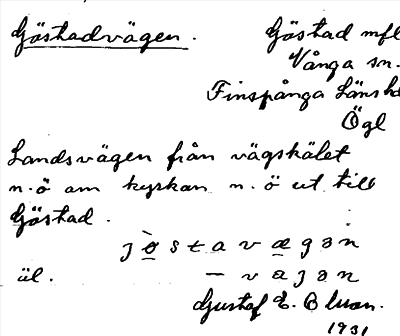 Göstadvägen. Göstad mfl
Vånga sn.
Finspånga Länshd
Ögl
Landsvägen från vägskälet
n.ö om kyrkan n.ö ut till
Göstad.
jöstavægən
äl. – vajən
Gustaf E.
1931